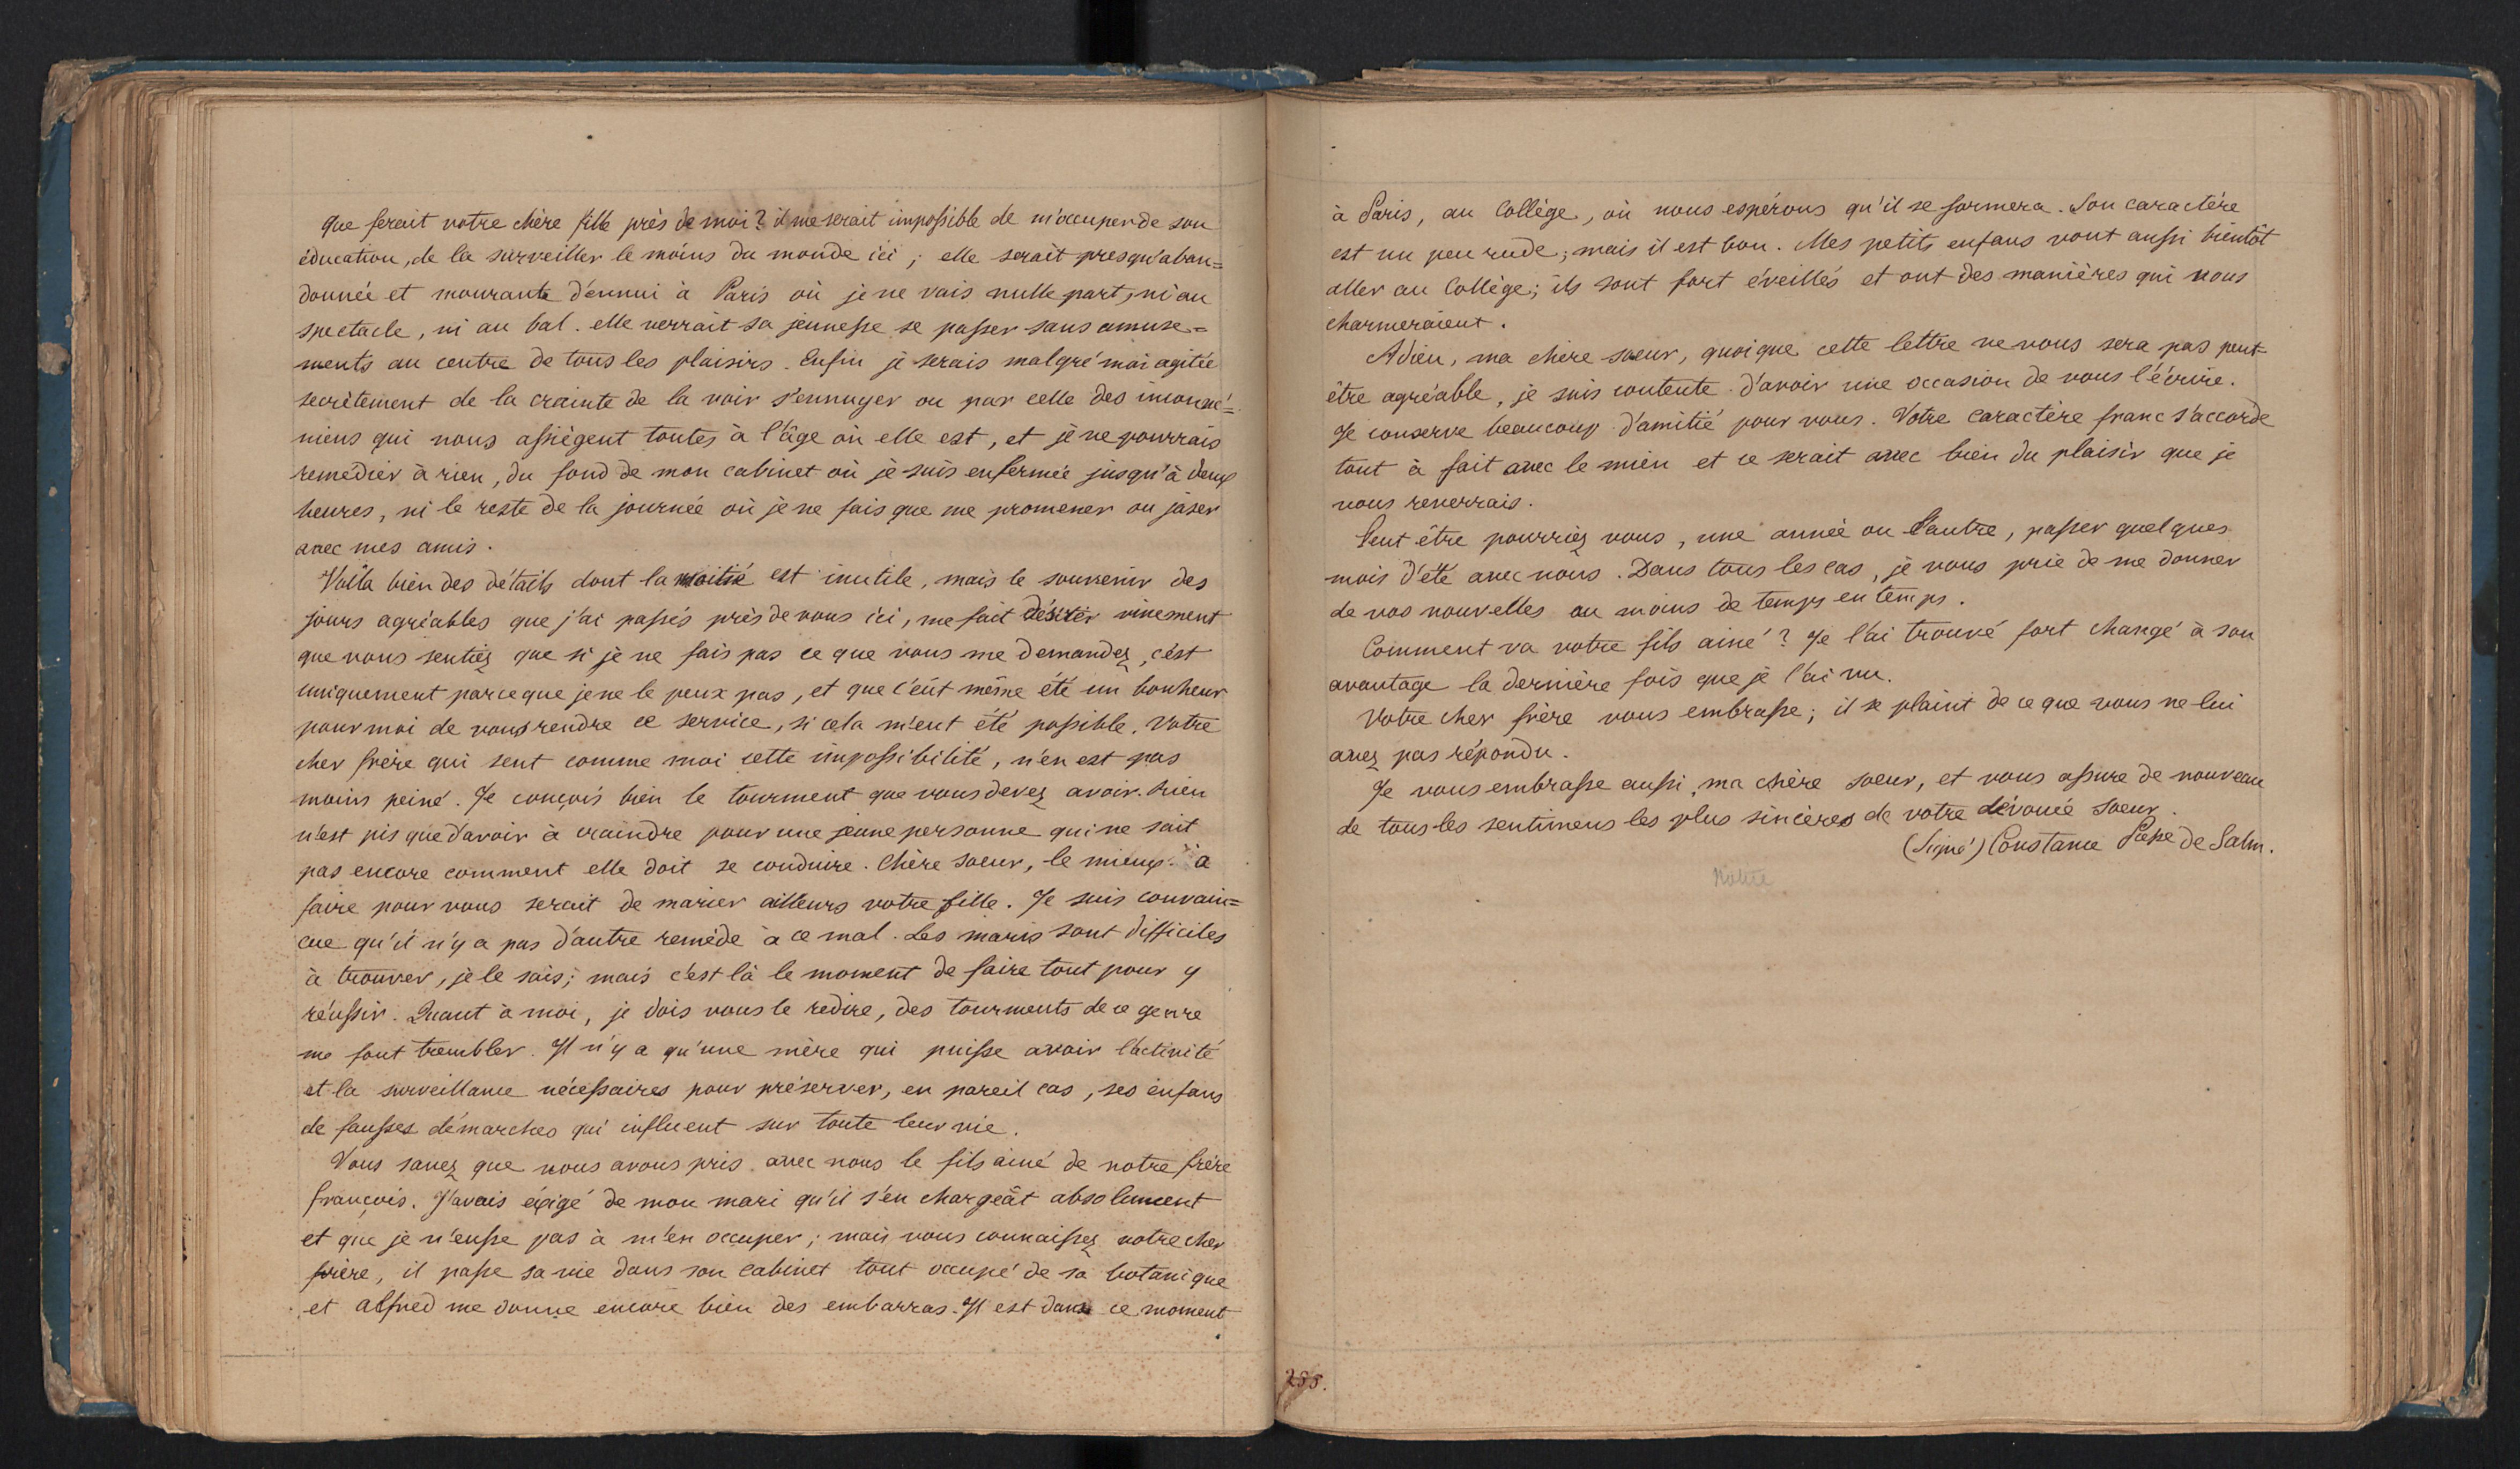 que ferait votre chère fille près de moi? il me serait impossible de m'occuper de son
éducation, de la surveiller le moins du monde ici; elle serait presqu'aban=
donnée et mourante d'ennui à Paris où je ne vais nulle part, ni au
spectacle, ni au bal. elle verrait sa jeunesse se passer sans amuse=
ments au centre de tous les plaisirs. Enfin je serais malgré moi agitée
secrètement de la crainte de la voir s'ennuyer ou par celle des inconvé=
niens qui nous assiègent toutes à l'âge où elle est, et je ne pourrais
remédier à rien, du fond de mon cabinet où je suis enfermée jusqu'à deux
heures, ni le reste de la journée où je ne fais que me promener ou jaser
avec mes amis.
Voilà bien des détails dont la moitié est inutile, mais le souvenir des
jours agréables que j'ai passés près de vous ici, me fait désirer vivement
que vous sentiez que si je ne fais pas ce que vous me demandez, c'est
uniquement parceque je ne le peux pas, et que c'eût même été un bonheur
pour moi de vous rendre ce service, si cela m'eut été possible. Votre
cher frère qui sent comme moi cette impossibilité, n'en est pas
moins peiné. Je conçois bien le tourment que vous devez avoir. Rien
n'est pis que d'avoir à craindre pour une jeune personne qui ne sait
pas encore comment elle doit se conduire. Chère soeur, le mieux à
faire pour vous serait de marier ailleurs votre fille. Je suis convain=
cue qu'il n'y a pas d'autre remède à ce mal. Les maris sont difficiles
à trouver, je le sais; mais c'est là le moment de faire tout pour y
réussir. Quant à moi, je dois vous le redire, des tourments de ce genre
me font trembler. Il n'y a qu'une mère qui puisse avoir l'activité
et la surveillance nécessaires pour préserver, en pareil cas, ses enfans
de fausses démarches qui influent sur toute leur vie.
Vous savez que nous avons pris avec nous le fils ainé de notre frère
françois. J'avais éxigé de mon mari qu'il s'en chargeât absolument
et que je n'eusse pas à m'en occuper; mais vous connaissez votre cher
frère, il passe sa vie dans son cabinet tout occupé de sa botanique
et alfred me donne encore bien des embarras. Il est dans ce moment
à Paris, au Collège, où nous espérons qu'il se formera. Son caractère
est un peu rude; mais il est bon. Mes petits enfans vont aussi bientôt
aller au Collège; ils sont fort éveillés et ont des manières qui vous
charmeraient.
Adieu, ma chère soeur, quoique cette lettre ne vous sera pas peut=
être agréable, je suis contente d'avoir une occasion de vous l'écrire.
Je conserve beaucoup d'amitié pour vous. Votre caractère franc s'accorde
tout à fait avec le mien et ce serait avec bien du plaisir que je
vous reverrais.
Peut être pourriez vous, une année ou l'autre, passer quelques
mois d'été avec nous. Dans tous les cas, je vous prie de me donner
de vos nouvelles au moins de temps en temps.
Comment va votre fils ainé? Je l'ai trouvé fort changé à son
avantage la dernière fois que je l'ai vu.
Votre cher frère vous embrasse; il se plaint de ce que vous ne lui
avez pas répondu.
Je vous embrasse aussi, ma chère soeur, et vous assure de nouveau
de tous les sentimens les plus sincères de votre dévouée soeur.
(Signé) Constance Psse de Salm.
255.